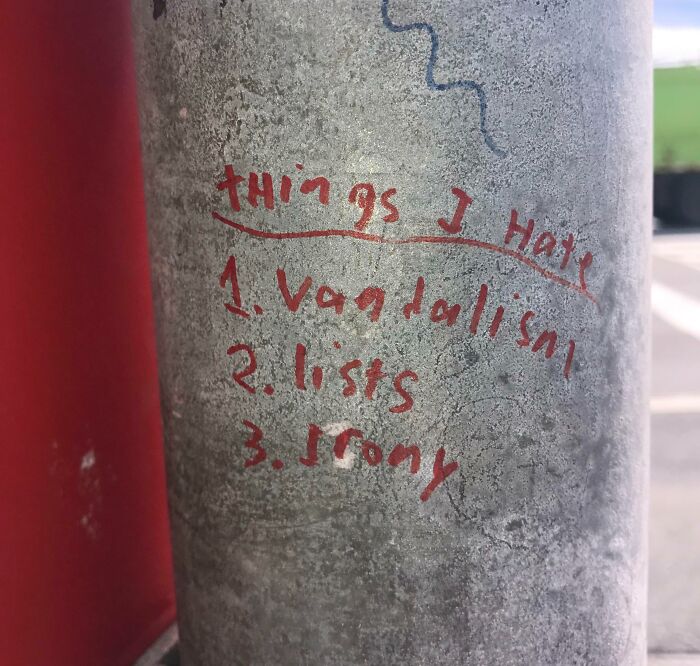 tHings I Hate
1. Vandalism
2. lists
3. Irony